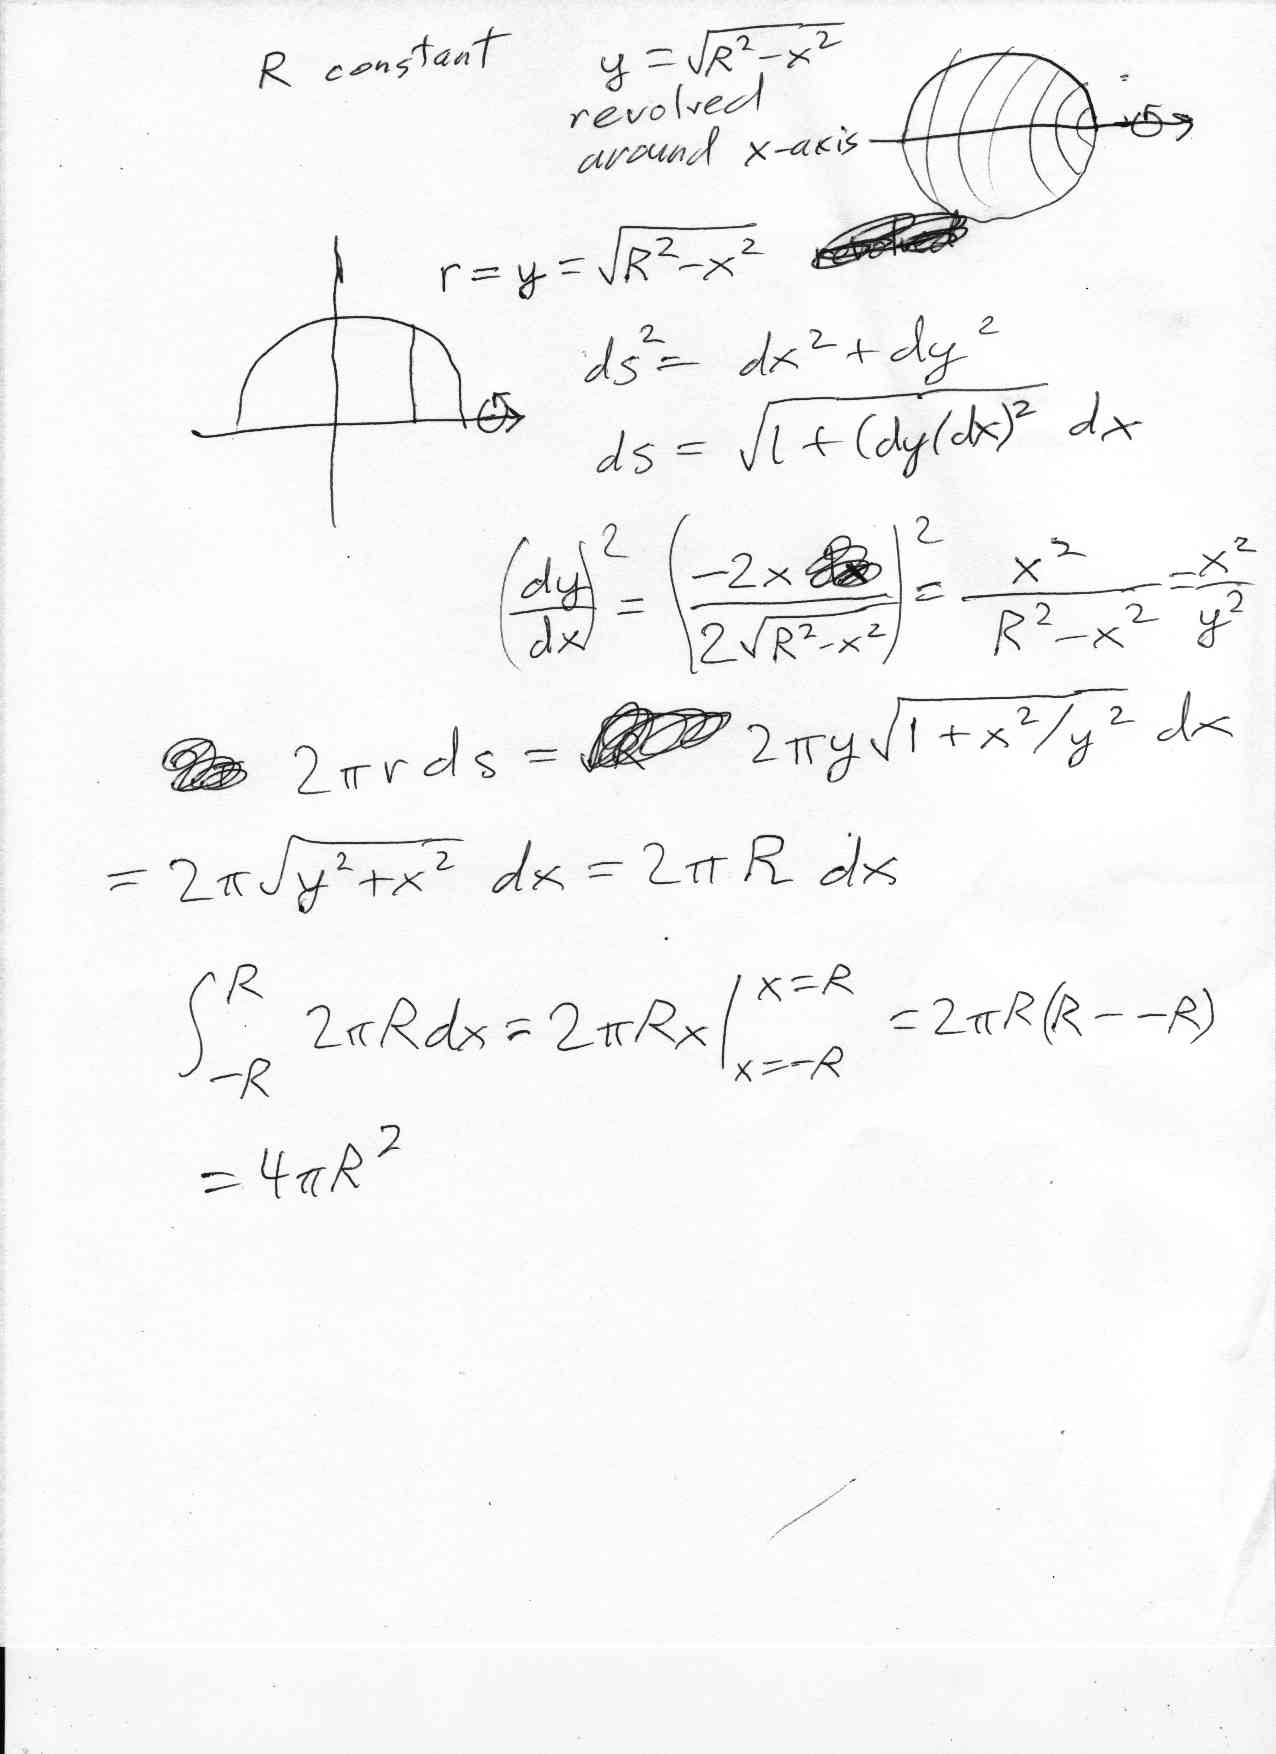 R constant
y = √(R² - x²)
revolved
around x-axis
r = y = √(R² - x²)
ds² = dx² + dy²
ds = √(1 + (dy/dx)²) dx
(dy/dx)² = (-2x / 2√(R² - x²))² = x² / (R² - x²) = x²/y²
2πr ds = 2πy √(1 + x²/y²) dx
= 2π√(y² + x²) dx = 2πR dx
∫_{-R}^{R} 2πR dx = 2πRx |_{x=-R}^{x=R} = 2πR(R - -R)
= 4πR²